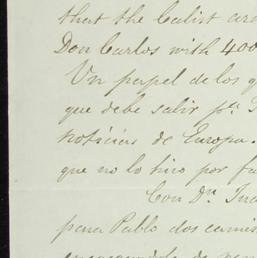 that the Calist
Don Carlos with 400
Un papel de los
que debe salir pa.
noticias de Europa.
que no lo hizo por fa
Con Dn.
para Pablo dos camis